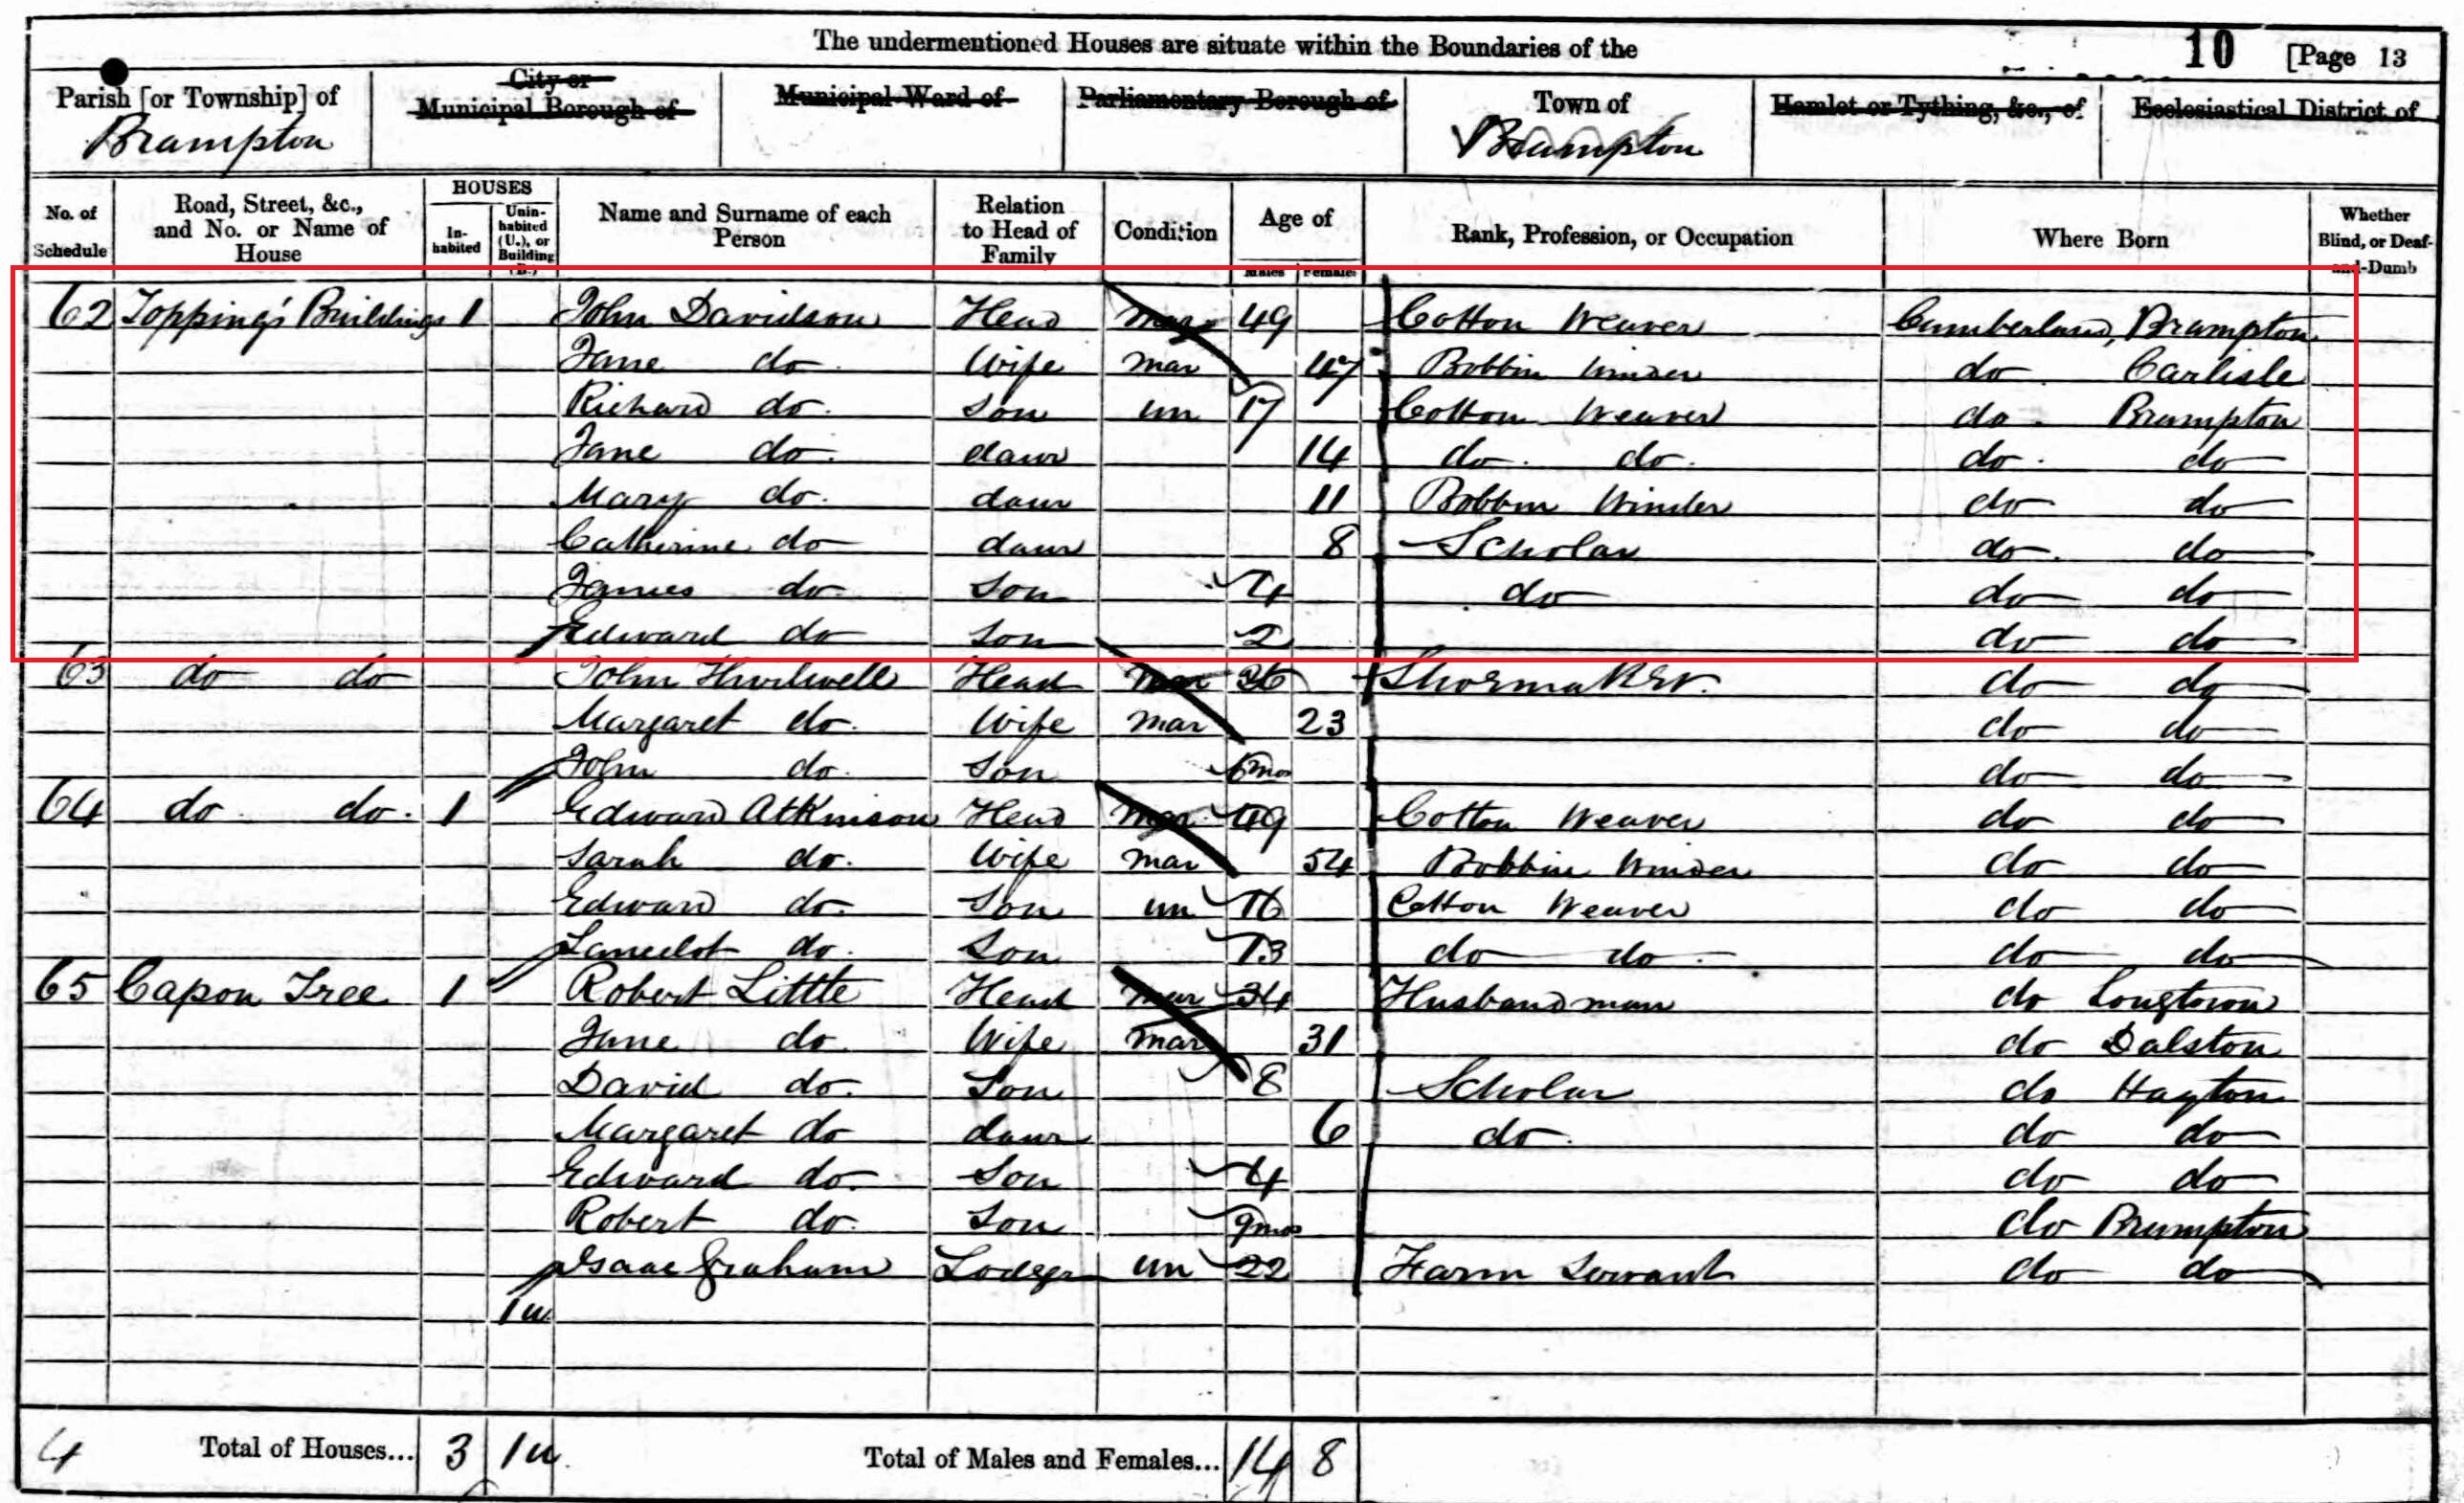 The undermentioned Houses are situate within the Boundaries of the 10 [Page 13
Parish [or Township] of Brampton City or Municipal Borough of Municipal Ward of Parliamentary Borough of Town of Brampton Hamlet or Tything, &c., of Ecclesiastical District of
No. of Schedule Road, Street, &c., and No. or Name of House HOUSES In-habited Unin-habited (U.), or Building (B.) Name and Surname of each Person Relation to Head of Family Condition Age of Males Females Rank, Profession, or Occupation Where Born Whether Blind, or Deaf-and-Dumb
62 Topping's Buildings 1 John Davidson Head Mar 49 Cotton Weaver Cumberland, Brampton
Jane do Wife Mar 47 Bobbin Winder do Carlisle
Richard do. Son un 17 Cotton Weaver do Brampton
Jane do. daur 14 do. do. do. do
Mary do. daur 11 Bobbin Winder do do
Catherine do daur 8 Scholar do. do
James do Son 4 do do do
Edward do Son 2 do do
63 do do John Head Mar 36 Shoemaker. do do
Margaret do. Wife Mar 23 do do
John do. Son 6mos do do
64 do. do. 1 Edward Atkinson Head Mar 49 Cotton Weaver do do
Sarah do. Wife Mar 54 Bobbin Winder do do
Edward do. Son un 16 Cotton Weaver do do
Lancelot do. Son 13 do do do do
65 Capon Tree 1 Robert Little Head Mar 34 Husbandman do Longtown
Jane do. Wife Mar 31 do Dalston
David do. Son 8 Scholar do Hayton
Margaret do daur 6 do. do do
Edward do. Son 4 do do
Robert do. Son 9mos do Brampton
Isaac Graham Lodger un 22 Farm Servant do do
1u
4 Total of Houses... 3 1u Total of Males and Females... 14 8